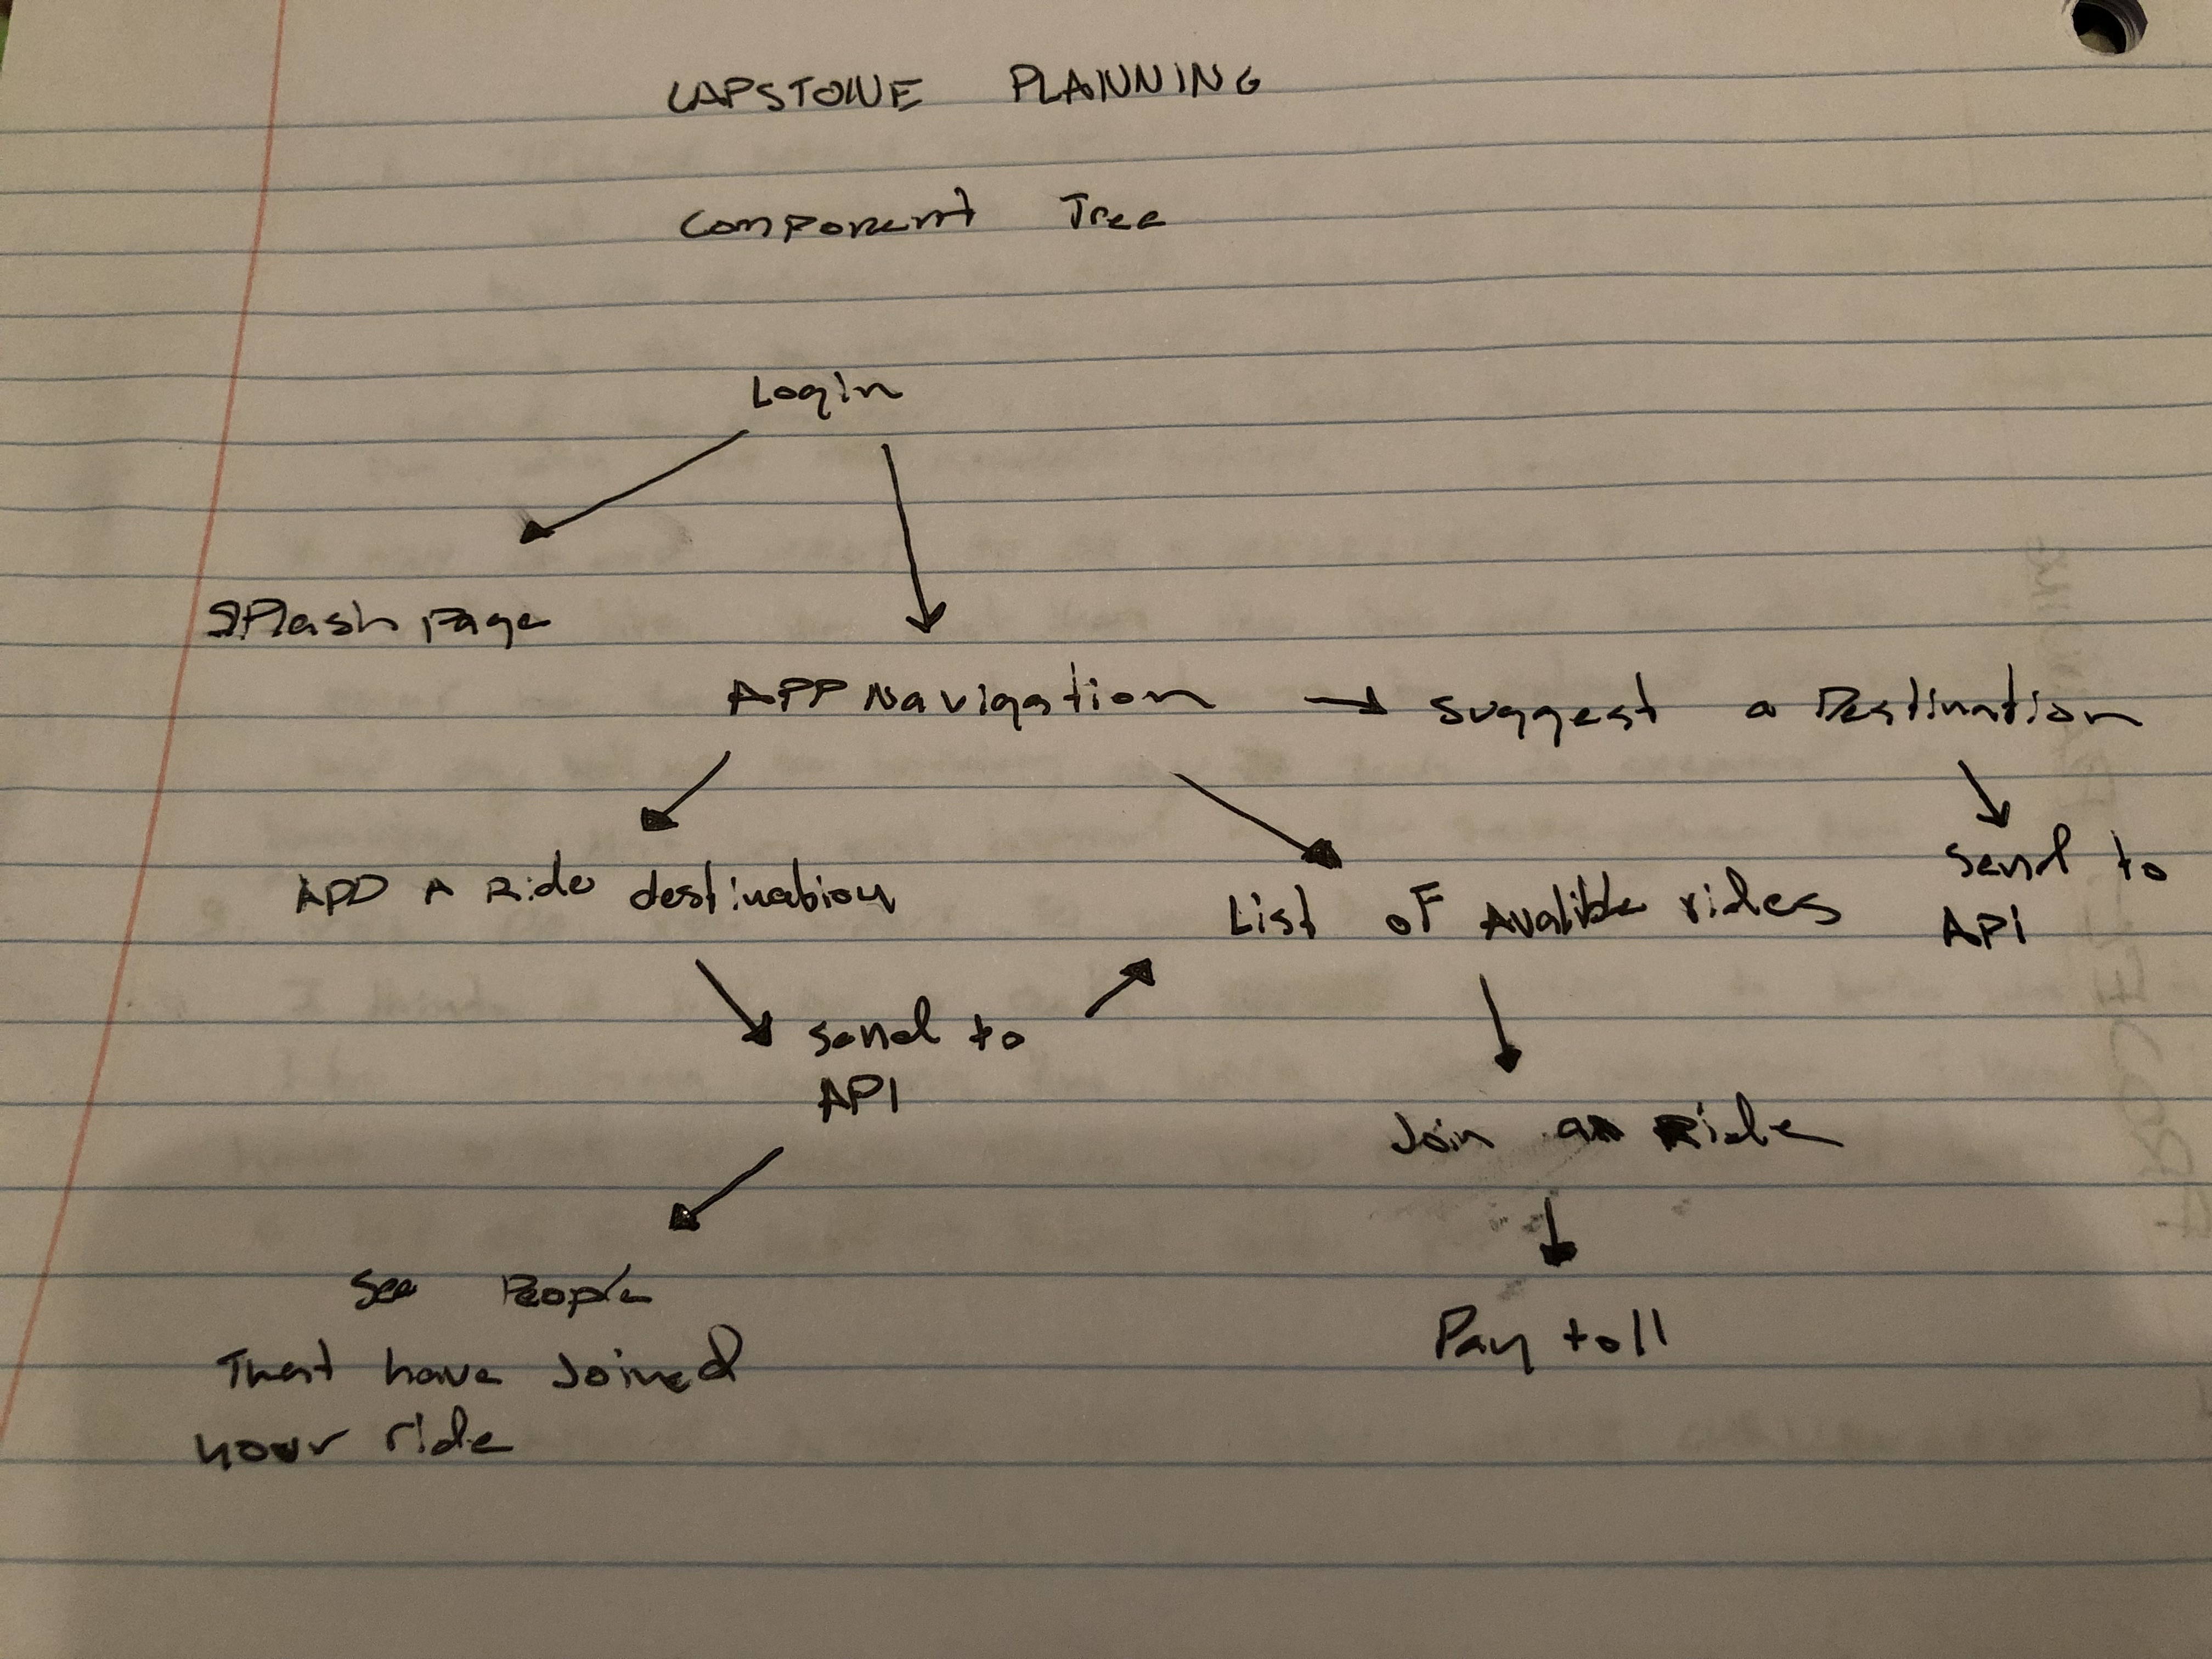 CAPSTONE PLANNING
Component Tree
Login
Splash page
APP Navigation → Suggest a Destination
ADD A Ride destination
List of Avalible rides
send to
API
send to
API
Join a Ride
See People
That have Joined
your ride
Pay toll